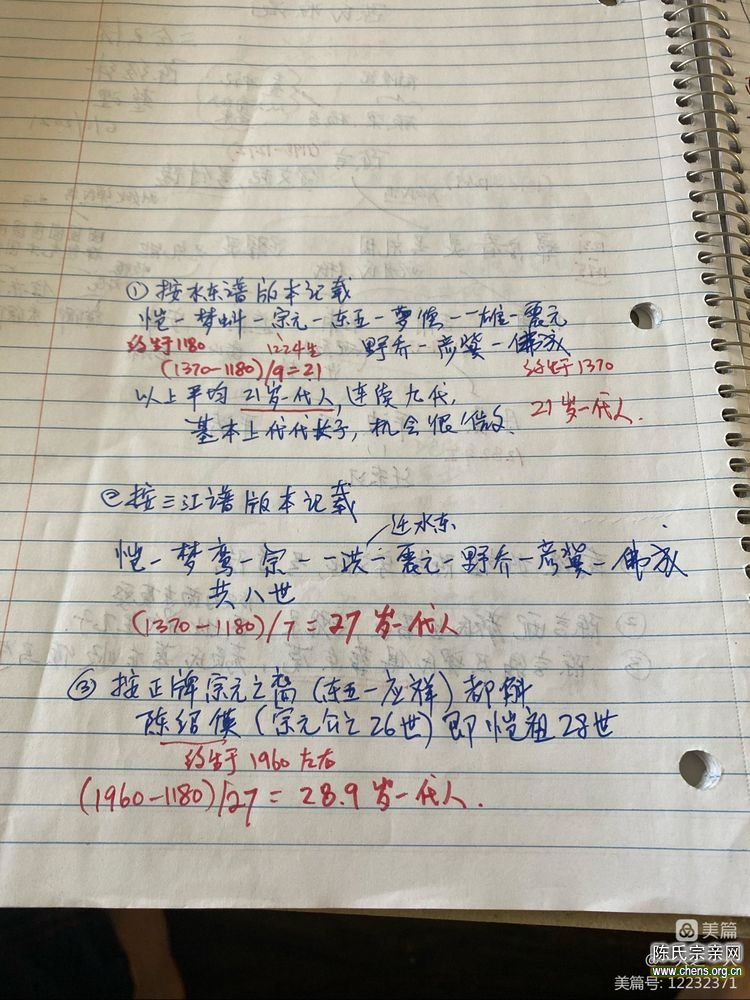 ①按水东谱版本记载
恺一梦蚪一宗元一东五一梦僖一一雄一震元
约生于1180 1224生 野乔一彦冀一佛成
(1370-1180)/9=21 约生于1370
以上平均21岁一代人,连续九代, 21岁一代人.
基本上代代长子,机会很微.
②按三江谱版本记载
迁水东
恺一梦鸾一宗一一洪一震元一野乔一彦冀一佛成
共八世
(1370-1180)/7=27岁一代人
③按正牌宗元之裔(东五一应祥)都斛
陈绍儀(宗元公之26世)即恺祖28世
约生于1960左右
(1960-1180)/27=28.9岁一代人.
美篇
陈氏宗亲网
www.chens.org.cn
美篇号:12232371